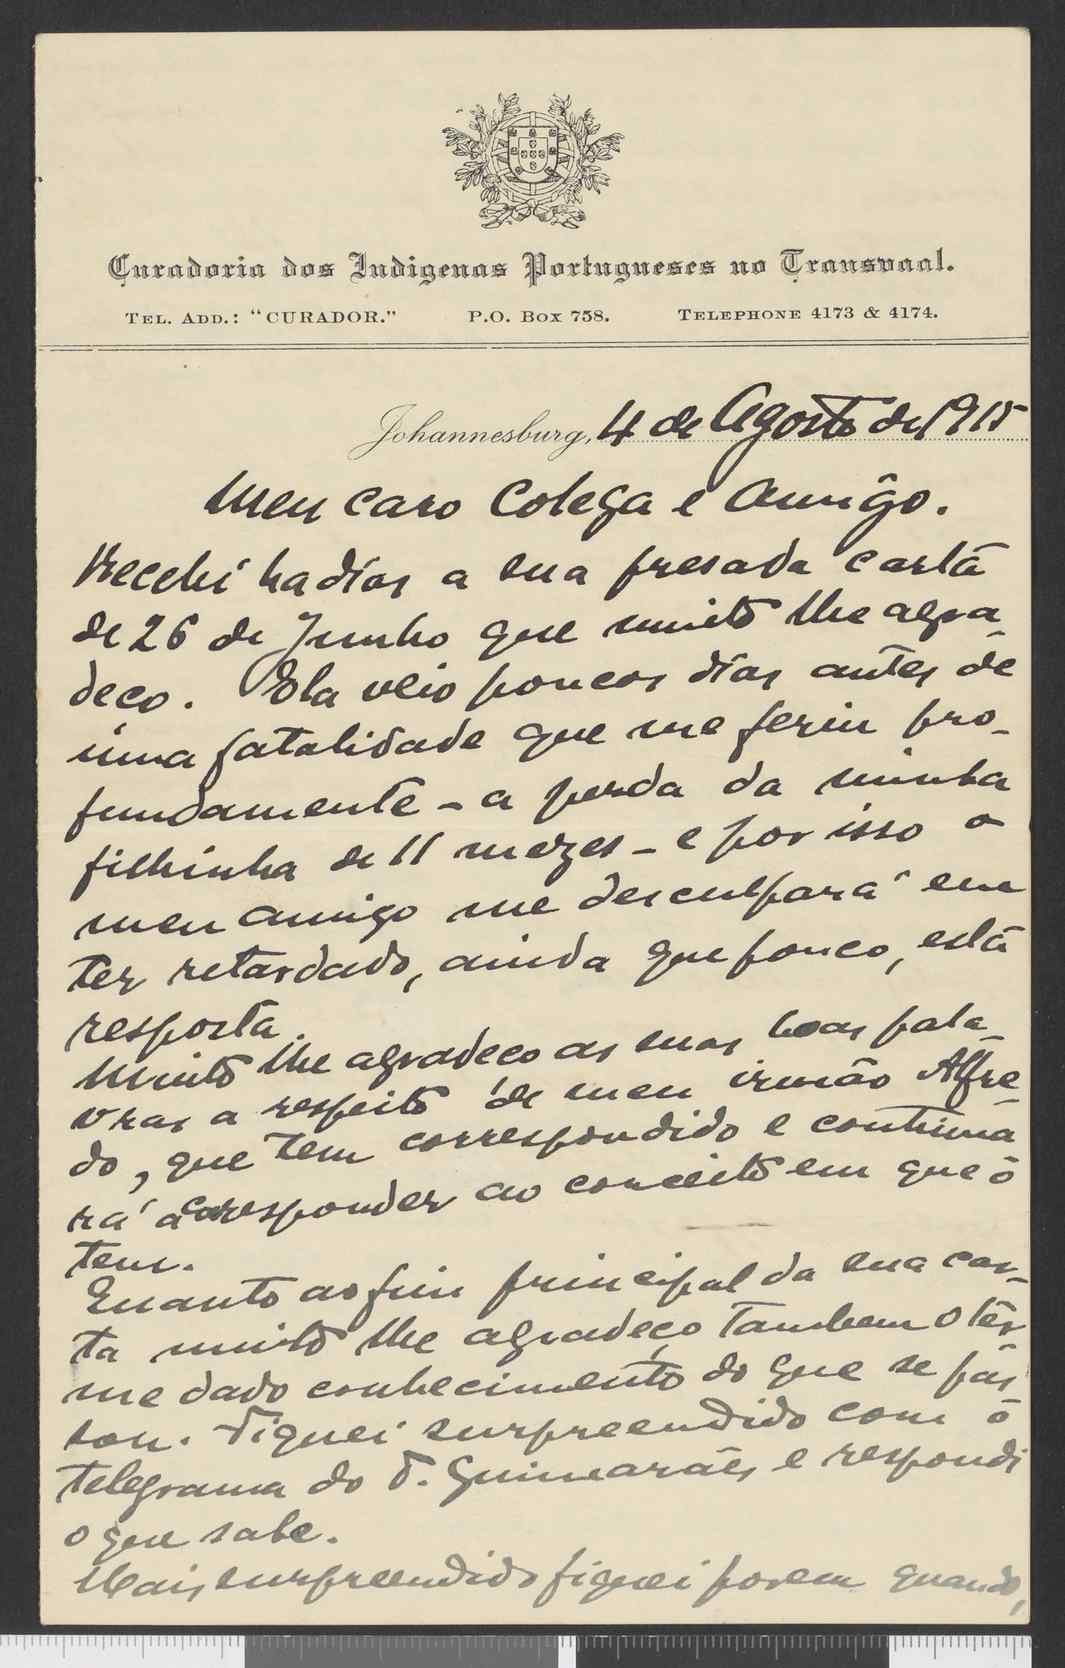 Curadoria dos Indigenas Portugueses no Transvaal.
TEL. ADD.: "CURADOR." P.O. BOX 758. TELEPHONE 4173 & 4174.
Johannesburg, 4 de Agosto de 1915
Meu caro Colega e Amigo.
Recebi ha dias a sua presada carta
de 26 de Junho que muito lhe agra-
deço. Ela veio poucos dias antes de
uma fatalidade que me feriu pro-
fundamente - a perda da minha
filhinha de 11 mezes - e por isso o
meu amigo me desculpará em
ter retardado, ainda que pouco, esta
resposta.
Muito lhe agradeço as suas boas pala-
vras a respeito de meu irmão Alfre-
do, que tem correspondido e continua
rá a corresponder ao conceito em que o
tem.
Quanto ao fim principal da sua car-
ta muito lhe agradeço tambem o ter
me dado conhecimento do que se pas
sou. Fiquei surpreendido com o
telegrama do T. Guimarães e respondi
o que sabe.
Mais surpreendido fiquei porem quando,